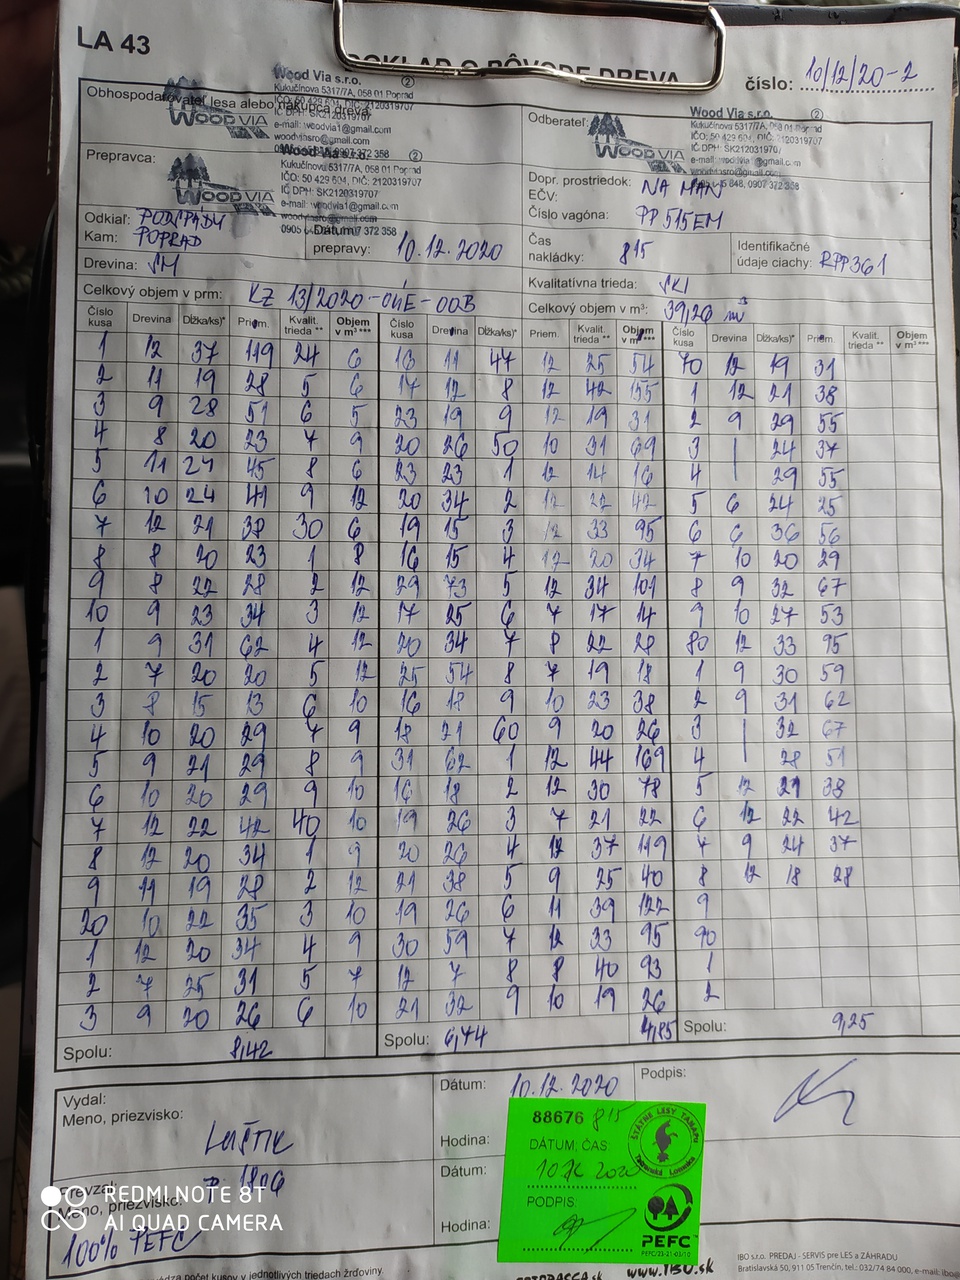 LA 43
DOKLAD O PÔVODE DREVA
číslo: 10/12/20-2
Obhospodarovateľ lesa alebo nákupca dreva:
Wood Via s.r.o. ②
Kukučínova 5317/7A, 058 01 Poprad
IČO: 50 429 604, DIČ: 2120319707
IČ DPH: SK2120319707
e-mail: woodvia1@gmail.com
woodviasro@gmail.com
WOOD VIA
Odberateľ:
Wood Via s.r.o. ②
Kukučínova 5317/7A, 058 01 Poprad
IČO: 50 429 604, DIČ: 2120319707
IČ DPH: SK2120319707
WOOD VIA
Prepravca:
Wood Via s.r.o. ②
Kukučínova 5317/7A, 058 01 Poprad
IČO: 50 429 604, DIČ: 2120319707
IČ DPH: SK2120319707
e-mail: woodvia1@gmail.com
woodviasro@gmail.com
WOOD VIA
Dopr. prostriedok: NA MAN
EČV:
Číslo vagóna: PP515EM
Odkiaľ: PODSPÁDY
Kam: POPRAD
Dátum prepravy: 10.12.2020
Čas nakládky: 815
Identifikačné údaje ciachy: RPP361
Drevina: SM
Kvalitatívna trieda: SKI
Celkový objem v prm: KZ 13/2020-04E-00B
Celkový objem v m³: 39,26 m³
Číslo kusa Drevina Dĺžka/ks)* Priem. Kvalit. trieda ** Objem v m³ *** Číslo kusa Drevina Dĺžka/ks)* Priem. Kvalit. trieda ** Objem v m³ *** Číslo kusa Drevina Dĺžka/ks)* Priem. Kvalit. trieda ** Objem v m³ ***
1 12 37 119 24 6 16 11 47 12 25 54 70 12 19 31
2 11 19 28 5 6 17 12 8 12 42 155 1 12 21 38
3 9 28 51 6 5 23 19 9 12 19 31 2 9 29 55
4 8 20 23 7 9 20 26 50 10 31 69 3 | 24 37
5 11 24 45 8 6 23 23 1 12 14 16 4 | 29 55
6 10 24 41 9 12 20 34 2 12 22 42 5 6 24 25
7 12 21 38 30 6 19 15 3 12 33 95 6 6 36 56
8 8 20 23 1 8 16 15 4 12 20 34 7 10 20 29
9 8 22 28 2 12 29 73 5 12 34 101 8 9 32 67
10 9 23 34 3 12 17 25 6 7 17 14 9 10 27 53
1 9 31 62 4 12 20 34 7 8 22 28 80 12 33 95
2 7 20 20 5 12 25 54 8 7 19 18 1 9 30 59
3 8 15 13 6 10 16 18 9 10 23 38 2 9 31 62
4 10 20 29 7 9 18 21 60 9 20 26 3 | 32 67
5 9 21 29 8 9 31 62 1 12 44 169 4 | 28 51
6 10 20 29 9 10 16 18 2 12 30 78 5 12 21 38
7 12 22 42 40 10 19 26 3 7 21 22 6 12 22 42
8 12 20 34 1 9 20 26 4 12 37 119 7 9 24 37
9 11 19 28 2 12 21 38 5 9 25 40 8 12 18 28
20 10 22 35 3 10 19 26 6 11 39 122 9
1 12 20 34 4 9 30 59 7 12 33 95 90
2 7 25 31 5 7 12 7 8 8 40 93 1
3 9 20 26 6 10 21 32 9 10 19 26 2
Spolu: 8,42 Spolu: 6,74 4,85 Spolu: 9,25
Vydal:
Meno, priezvisko:
Dátum: 10.12.2020
Podpis:
Hodina:
Prevzal:
Meno, priezvisko:
Dátum:
Hodina:
100% PEFC
88676 815
ŠTÁTNE LESY TANAPU
Tatranská Lomnica
DÁTUM, ČAS:
PODPIS:
PEFC
PEFC/23-21-03/10
REDMI NOTE 8T
AI QUAD CAMERA
počet kusov v jednotlivých triedach žrďoviny.
www.IBO.sk
IBO s.r.o. PREDAJ - SERVIS pre LES a ZÁHRADU
Bratislavská 50, 911 05 Trenčín, tel.: 032/74 84 000